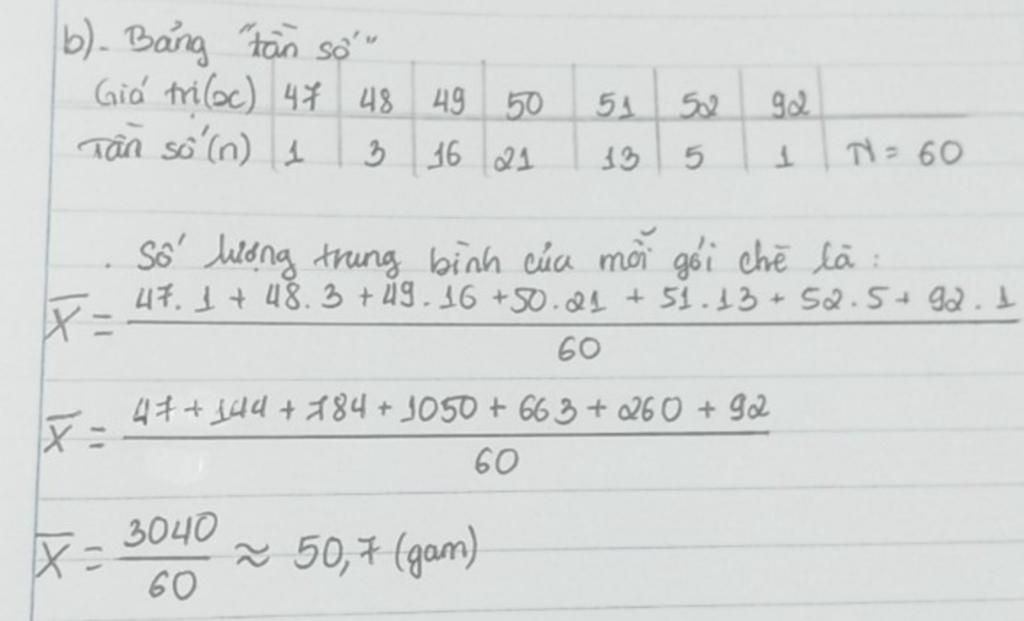 b). Bảng "tần số"
Giá trị(x) 47 48 49 50 51 52 92
Tần số(n) 1 3 16 21 13 5 1 N = 60
. Số lượng trung bình của mỗi gói chè là :
X̅ = (47.1 + 48.3 + 49.16 + 50.21 + 51.13 + 52.5 + 92.1) / 60
X̅ = (47 + 144 + 784 + 1050 + 663 + 260 + 92) / 60
X̅ = 3040 / 60 ≈ 50,7 (gam)